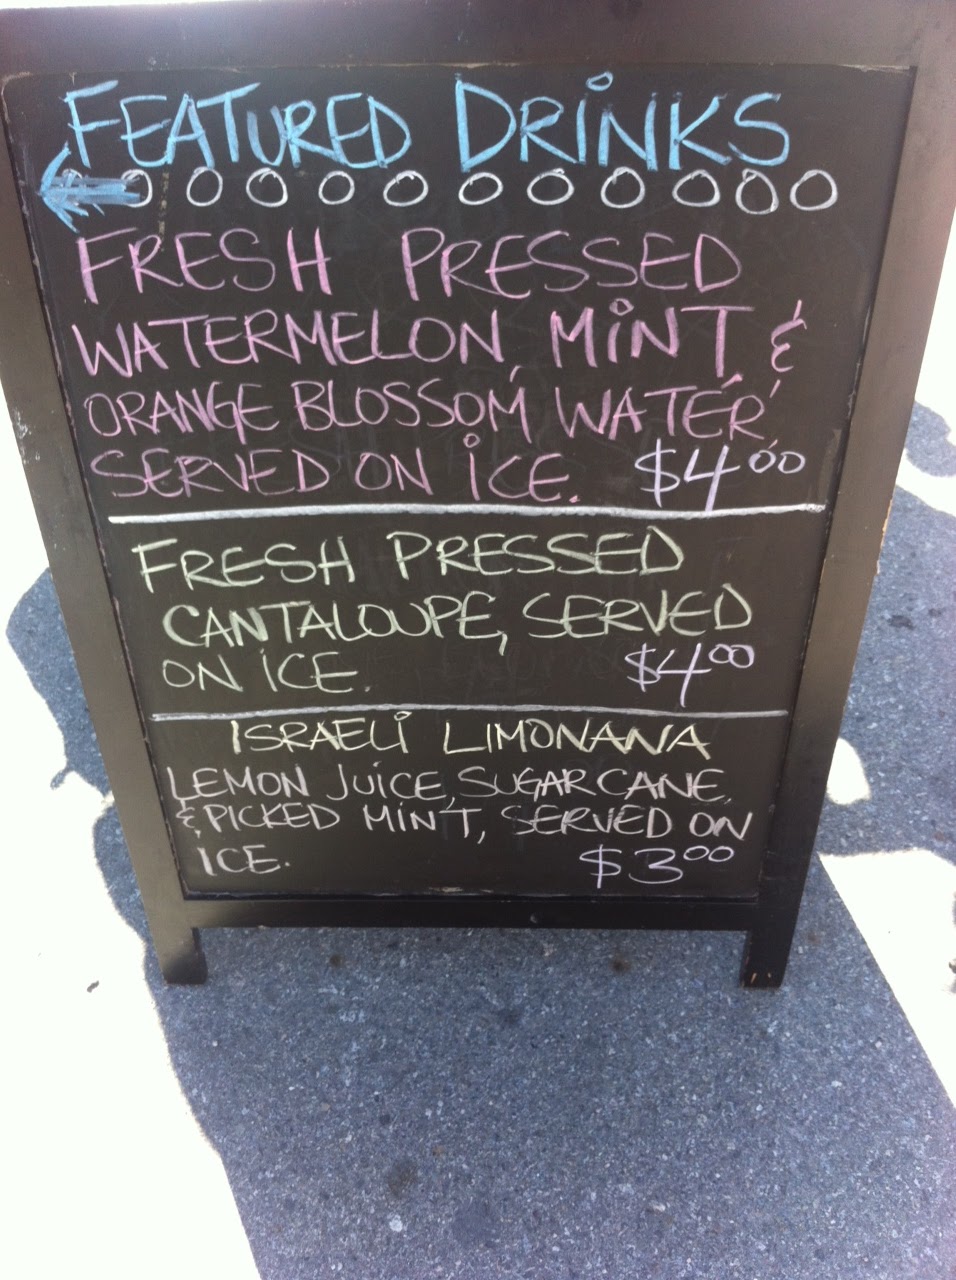 FEATURED DRINKS
FRESH PRESSED
WATERMELON, MINT, &
ORANGE BLOSSOM WATER,
SERVED ON ICE. $4.00
FRESH PRESSED
CANTALOUPE, SERVED
ON ICE. $4.00
ISRAELI LIMONANA
LEMON JUICE, SUGAR CANE,
& PICKED MINT, SERVED ON
ICE. $3.00